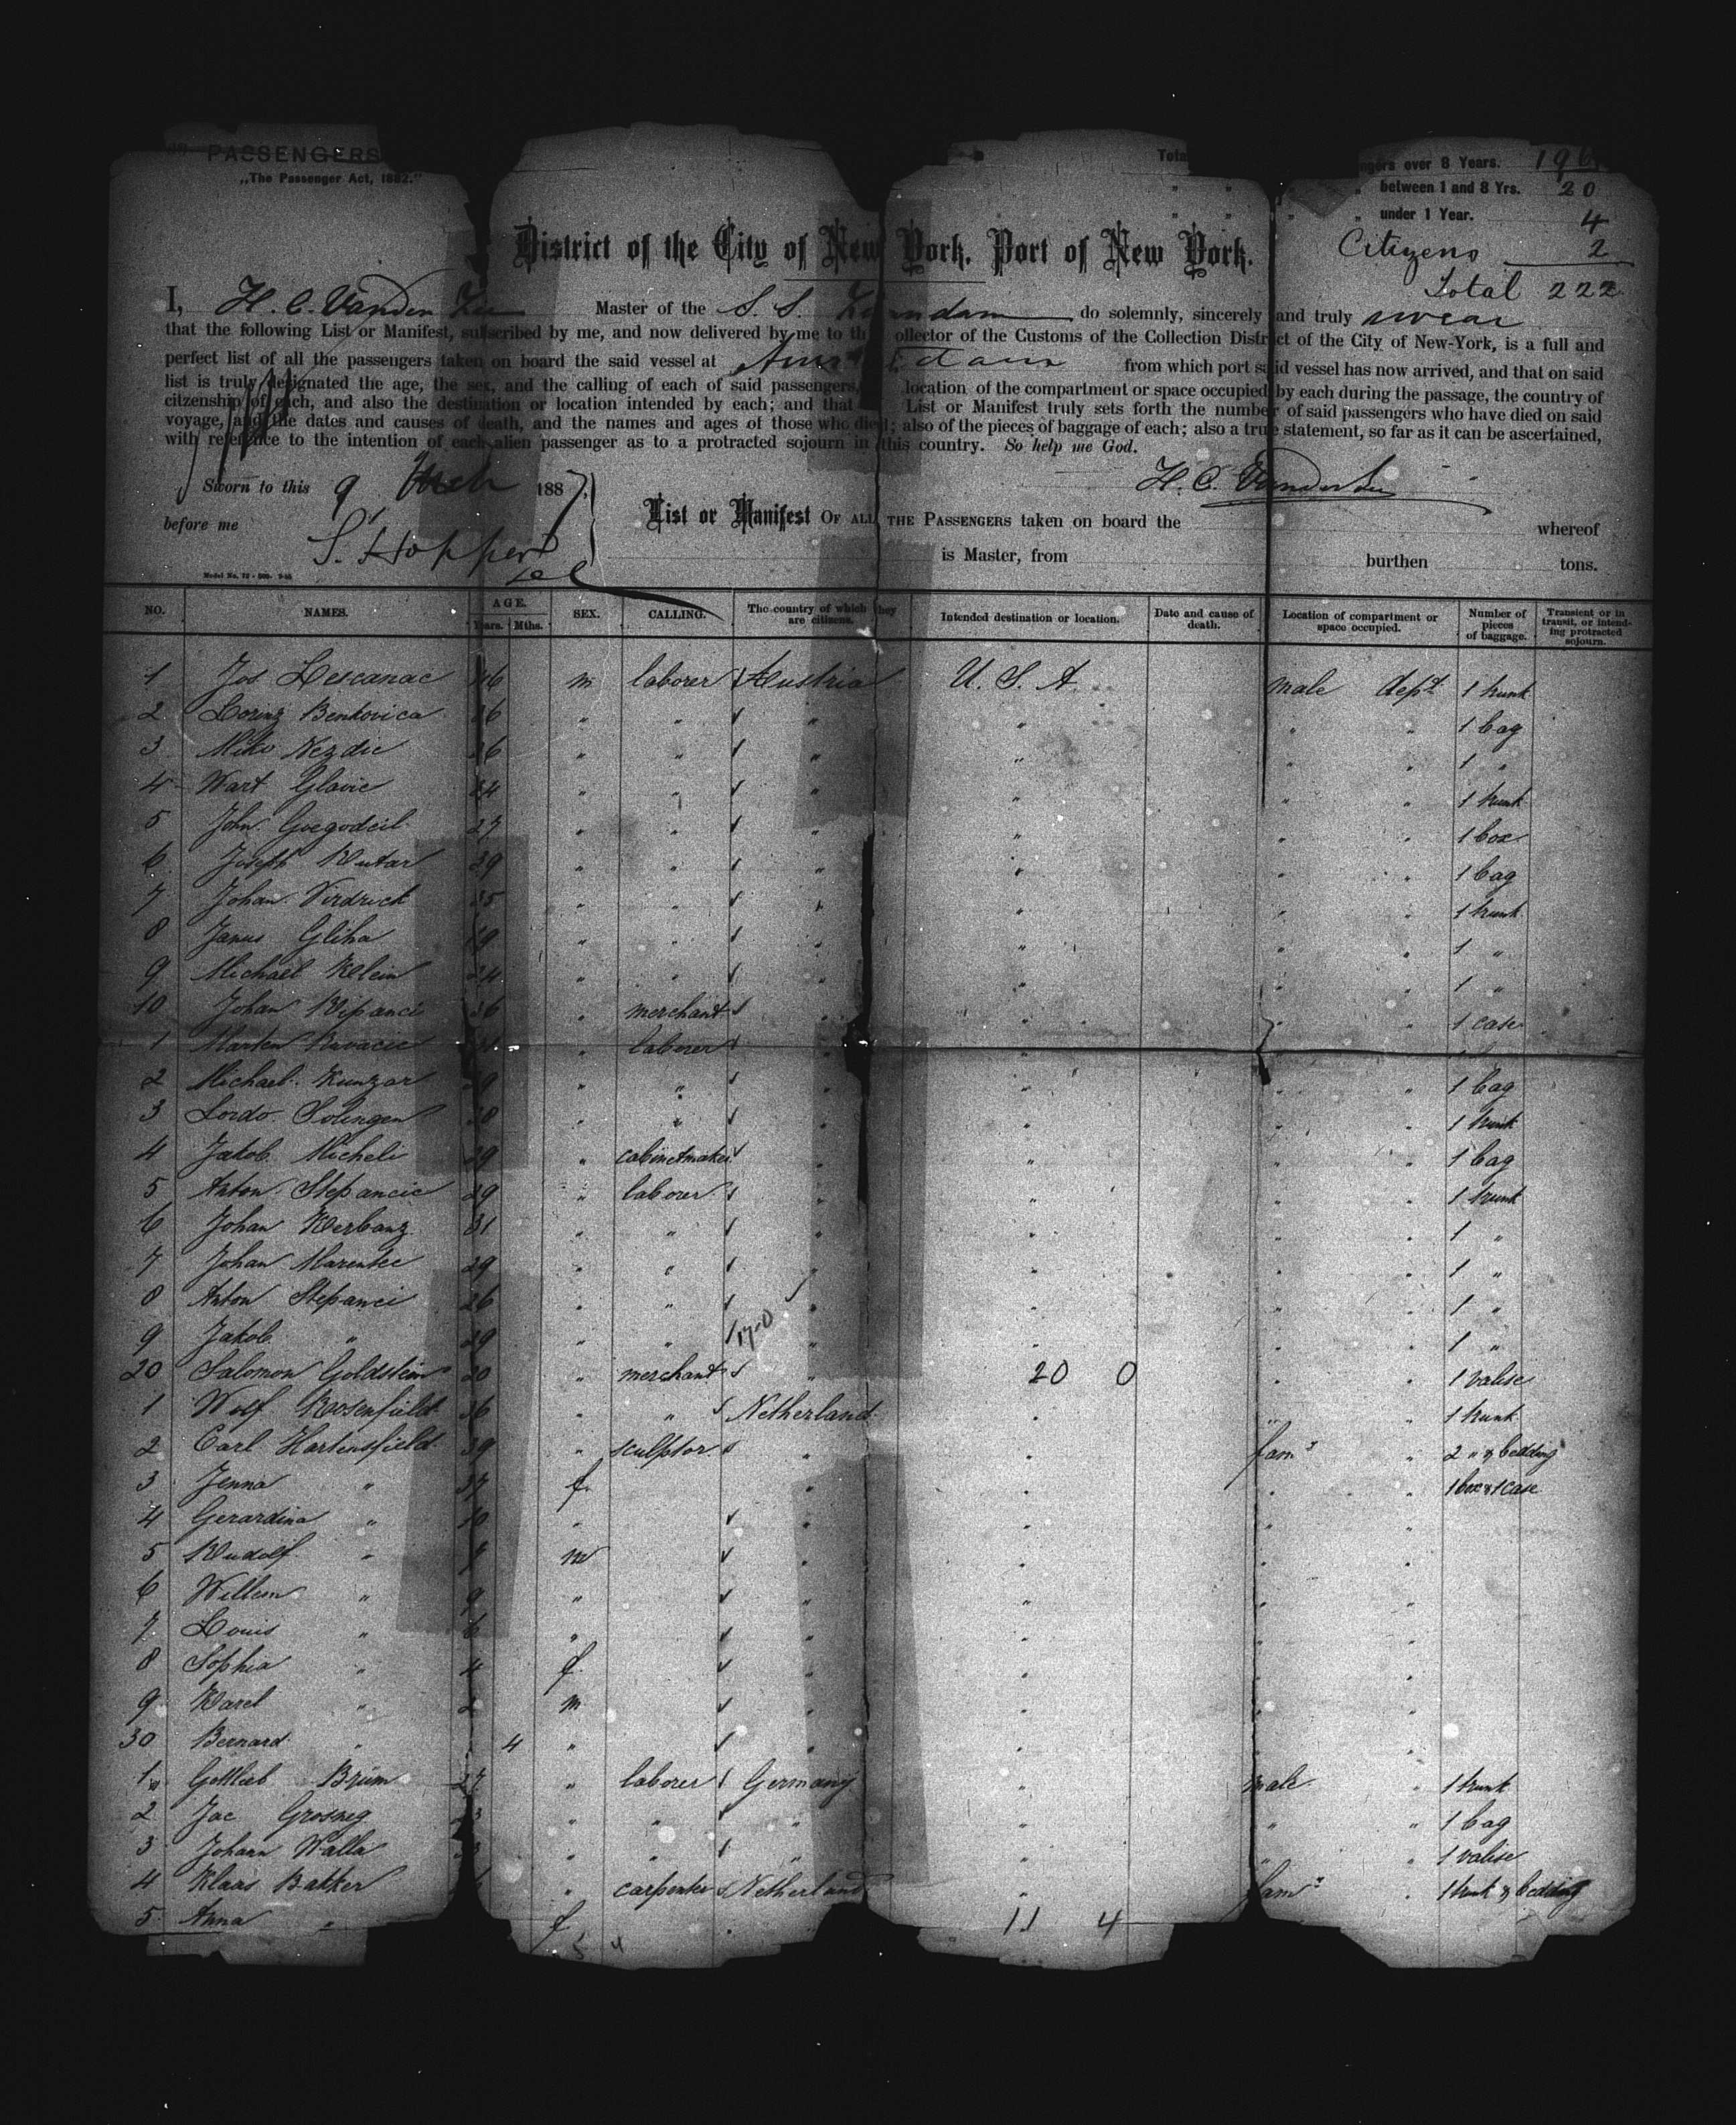 PASSENGERS
„The Passenger Act, 1882."
Total
ngers over 8 Years. 196
" " between 1 and 8 Yrs. 20
" " under 1 Year. 4
Citizens 2
Total 222
District of the City of New York. Port of New York.
I, H. C. Vanden Zee Master of the S. S. Zaandam do solemnly, sincerely and truly swear
that the following List or Manifest, subscribed by me, and now delivered by me to th ollector of the Customs of the Collection District of the City of New-York, is a full and
perfect list of all the passengers taken on board the said vessel at Amsterdam from which port said vessel has now arrived, and that on said
list is truly designated the age, the sex, and the calling of each of said passengers, location of the compartment or space occupied by each during the passage, the country of
citzenship of each, and also the destination or location intended by each; and that List or Manifest truly sets forth the number of said passengers who have died on said
voyage, and the dates and causes of death, and the names and ages of those who died; also of the pieces of baggage of each; also a true statement, so far as it can be ascertained,
with reference to the intention of each alien passenger as to a protracted sojourn in this country. So help me God.
H. C. Vanden Zee
Sworn to this 9 Mch 1887
before me S. Hopper
List or Manifest OF ALL THE PASSENGERS taken on board the whereof
is Master, from burthen tons.
NO. NAMES. AGE. Years. Mths. SEX. CALLING. The country of which they are citizens. Intended destination or location. Date and cause of death. Location of compartment or space occupied. Number of pieces of baggage. Transient or in transit, or intending protracted sojourn.
1 Jos Lescanac 46 m laborer Austria U. S. A. male dept 1 trunk
2 Lorinz Benkovica 36 " " " " " " 1 bag
3 Miko Nezdic 36 " " " " " " 1 "
4 Wart Glavic 24 " " " " " " 1 trunk
5 John Goegodcil 27 " " " " " " 1 box
6 Joseph Kutar 39 " " " " " " 1 bag
7 Johan Virdrick 35 " " " " " " 1 trunk
8 Janus Gliha 19 " " " " " " 1 "
9 Michael Klein 24 " " " " " " 1 "
10 Johan Ripanci 36 " merchant " " " " 1 case
1 Marten " laborer " " " "
2 Michael Kunzar " " " " " " 1 bag
3 Lordo Solingen 38 " " " " " " 1 trunk
4 Jakob Micheli 29 " cabinetmaker " " " " 1 bag
5 Anton Stepancic 29 " laborer " " " " 1 trunk
6 Johan Kerbanz 31 " " " " " " 1 "
7 Johan Marentic 29 " " " " " " 1 "
8 Anton Stepanci 26 " " " " " " 1 "
9 Jakob " 29 " " 19-0 " " " " 1 "
20 Salomon Goldstein 20 " merchant " 20 0 " " 1 valise
1 Wolf Rosenfield 36 " " Netherland " " " 1 trunk
2 Carl Hartensfield 39 " sculptor " " fam " 2 " & bedding
3 Jenna " 37 f " " " " 1 box & 1 case
4 Gerardina " 10 " " " " "
5 Rudolf " m " " " "
6 Willem " 9 " " " " "
7 Louis " 6 " " " " "
8 Sophia " 4 f " " " "
9 Karel " 2 m " " " "
30 Bernard " 4 " " " " "
1 Gottlieb Brüm 27 " laborer Germany " male " 1 trunk
2 Jac Grosneg " " " " " " 1 bag
3 Johann Walla " " " " " " 1 valise
4 Klaas Bakker " carpenter Netherland " fam " 1 trunk & bedding
5 Anna " f " 11 4